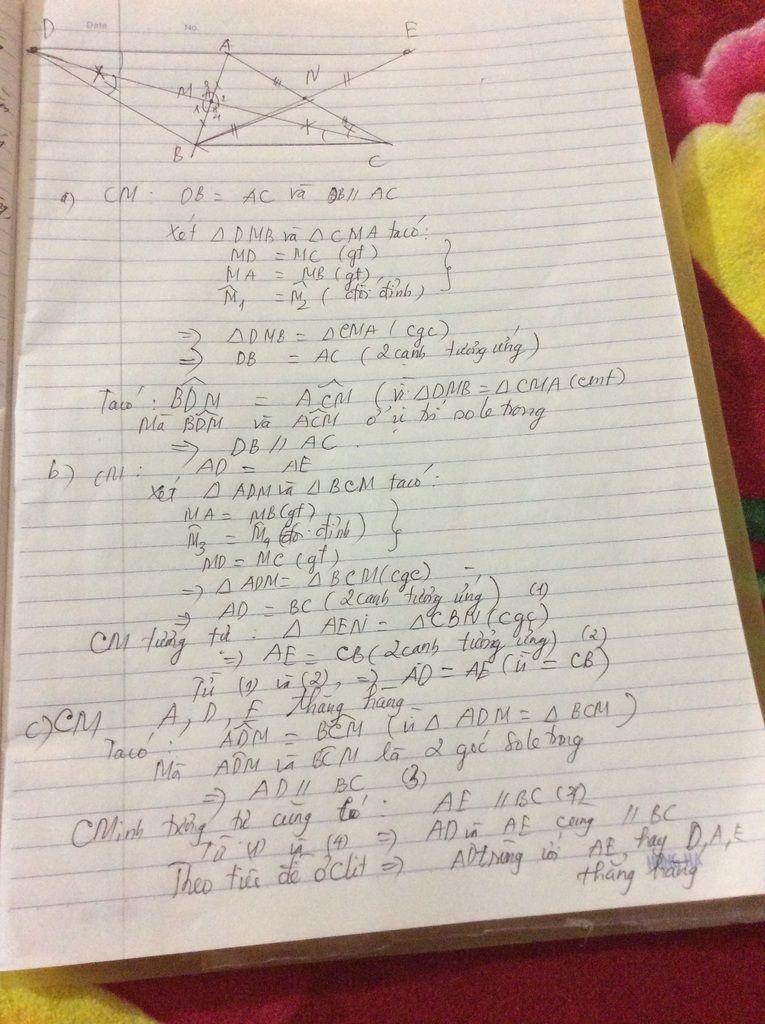 Date No.
D A E
M N
B C
a) CM: DB = AC và DB // AC
Xét △ DMB và △ CMA ta có:
MD = MC (gt)
MA = MB (gt)
M̂₁ = M̂₂ (đối đỉnh)
⇒ △ DMB = △ CMA (cgc)
⇒ DB = AC (2 cạnh tương ứng)
Ta có: BD̂M = AĈM (vì △DMB = △CMA (cmt)
Mà BD̂M và AĈM ở vị trí sole trong
⇒ DB // AC.
b) CM: AD = AE
Xét △ ADM và △ BCM ta có:
MA = MB (gt)
M̂₃ = M̂₄ (đối đỉnh)
MD = MC (gt)
⇒ △ ADM = △ BCM (cgc)
⇒ AD = BC (2 cạnh tương ứng) (1)
CM tương tự: △ AEN = △ CBN (cgc)
⇒ AE = CB (2 cạnh tương ứng) (2)
Từ (1) và (2), ⇒ AD = AE (vì = CB)
c) CM A, D, E thẳng hàng
Ta có: AD̂M = BĈM (vì △ ADM = △ BCM)
Mà AD̂M và BĈM là 2 góc sole trong
⇒ AD // BC (3)
CMinh tương tự cũng có: AE // BC
Từ và (4) ⇒ AD và AE cùng // BC
Theo tiên đề ơClit ⇒ AD trùng với AE hay D, A, E
thẳng hàng